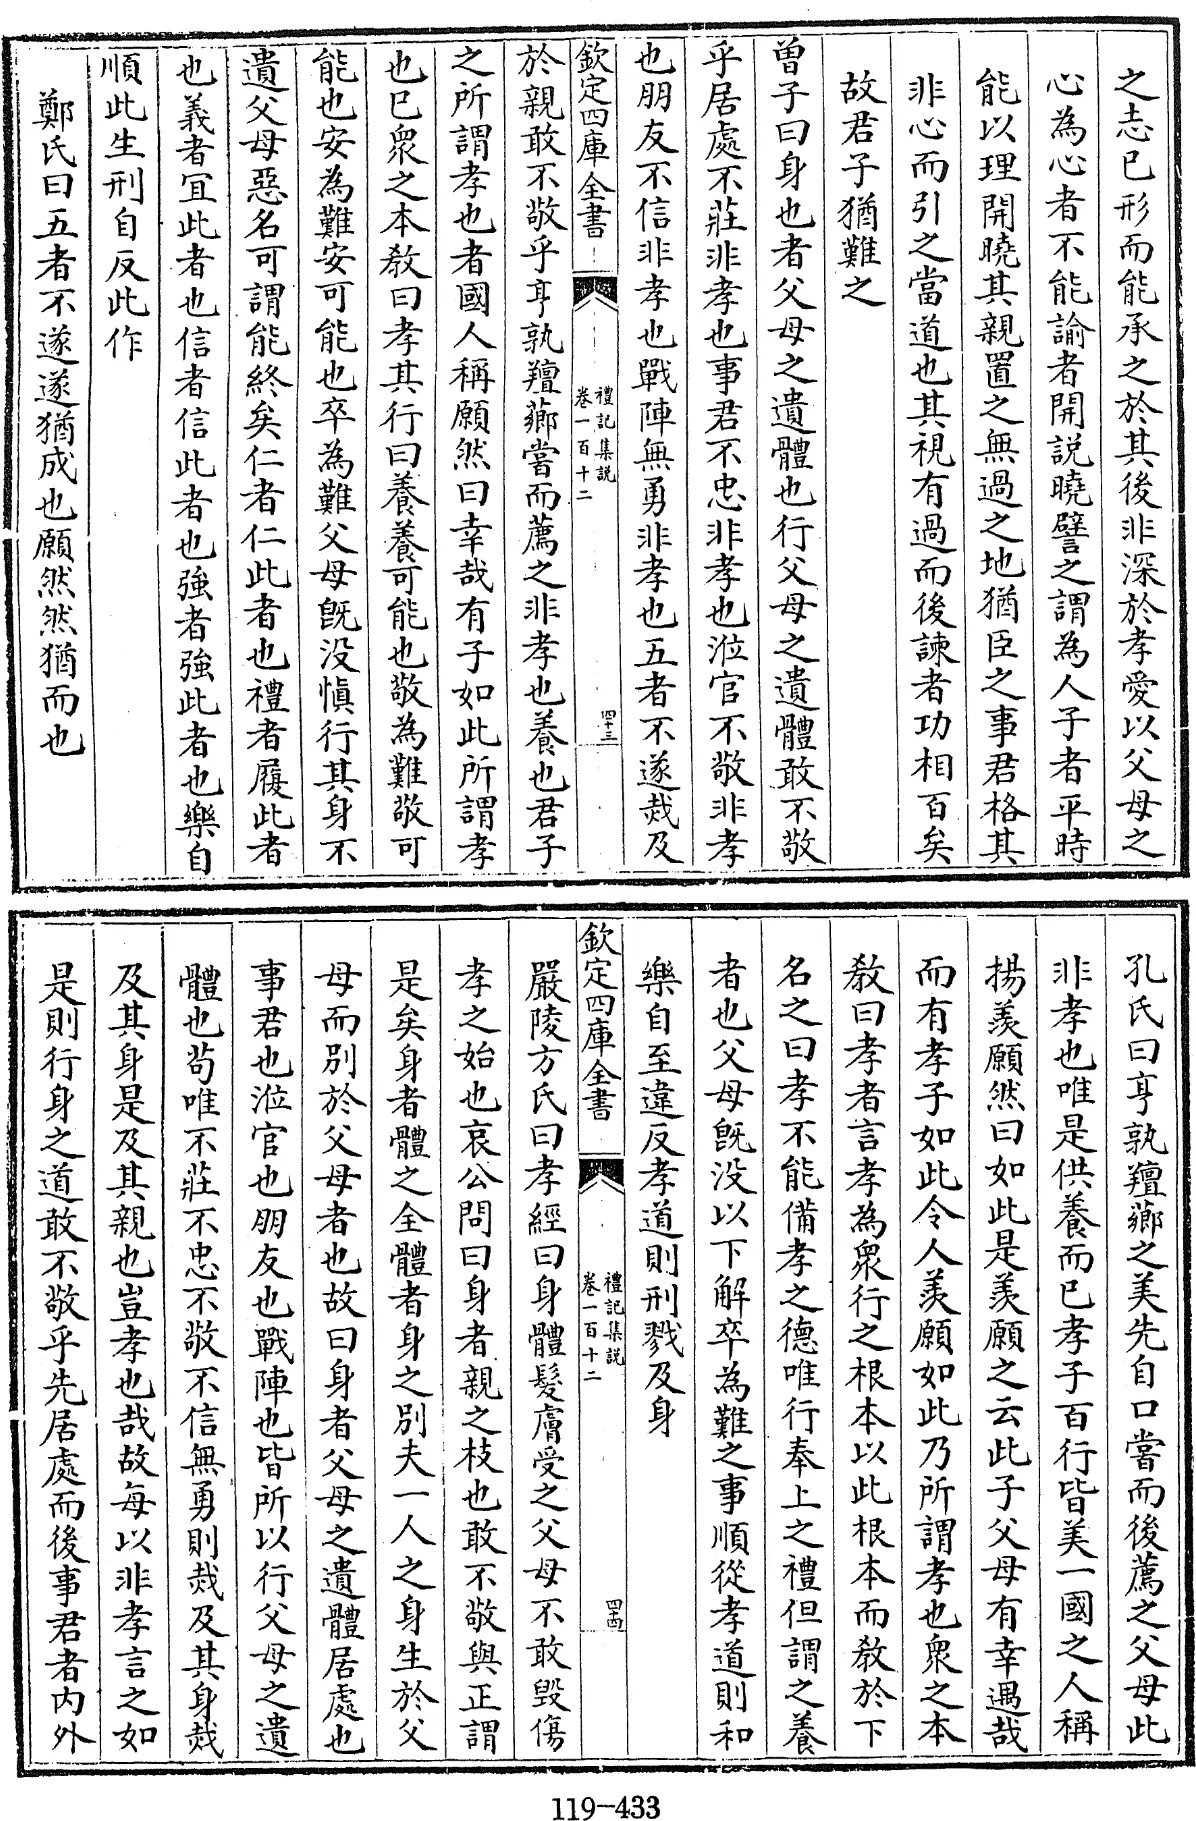 之志已形而能承之於其後非深於孝愛以父母之
心為心者不能諭者開説曉譬之謂為人子者平時
能以理開曉其親置之無過之地猶臣之事君格其
非心而引之當道也其視有過而後諫者功相百矣
故君子猶難之
曽子曰身也者父母之遺體也行父母之遺體敢不敬
乎居處不莊非孝也事君不忠非孝也涖官不敬非孝
也朋友不信非孝也戰陣無勇非孝也五者不遂烖及
欽定四庫全書
禮記集説
卷一百十二
四十三
於親敢不敬乎亨孰羶薌嘗而薦之非孝也養也君子
之所謂孝也者國人稱願然曰幸哉有子如此所謂孝
也已衆之本教曰孝其行曰養養可能也敬為難敬可
能也安為難安可能也卒為難父母既没慎行其身不
遺父母惡名可謂能終矣仁者仁此者也禮者履此者
也義者宜此者也信者信此者也強者強此者也樂自
順此生刑自反此作
鄭氏曰五者不遂遂猶成也願然然猶而也
孔氏曰亨孰羶薌之美先自口嘗而後薦之父母此
非孝也唯是供養而已孝子百行皆美一國之人稱
揚羨願然曰如此是羨願之云此子父母有幸遇哉
而有孝子如此令人羨願如此乃所謂孝也衆之本
教曰孝者言孝為衆行之根本以此根本而教於下
名之曰孝不能備孝之德唯行奉上之禮但謂之養
者也父母既没以下解卒為難之事順從孝道則和
樂自至違反孝道則刑戮及身
欽定四庫全書
禮記集説
卷一百十二
四十四
嚴陵方氏曰孝經曰身體髮膚受之父母不敢毀傷
孝之始也哀公問曰身者親之枝也敢不敬與正謂
是矣身者體之全體者身之别夫一人之身生於父
母而别於父母者也故曰身者父母之遺體居處也
事君也涖官也朋友也戰陣也皆所以行父母之遺
體也苟唯不莊不忠不敬不信無勇則烖及其身烖
及其身是及其親也豈孝也哉故每以非孝言之如
是則行身之道敢不敬乎先居處而後事君者内外
119-433